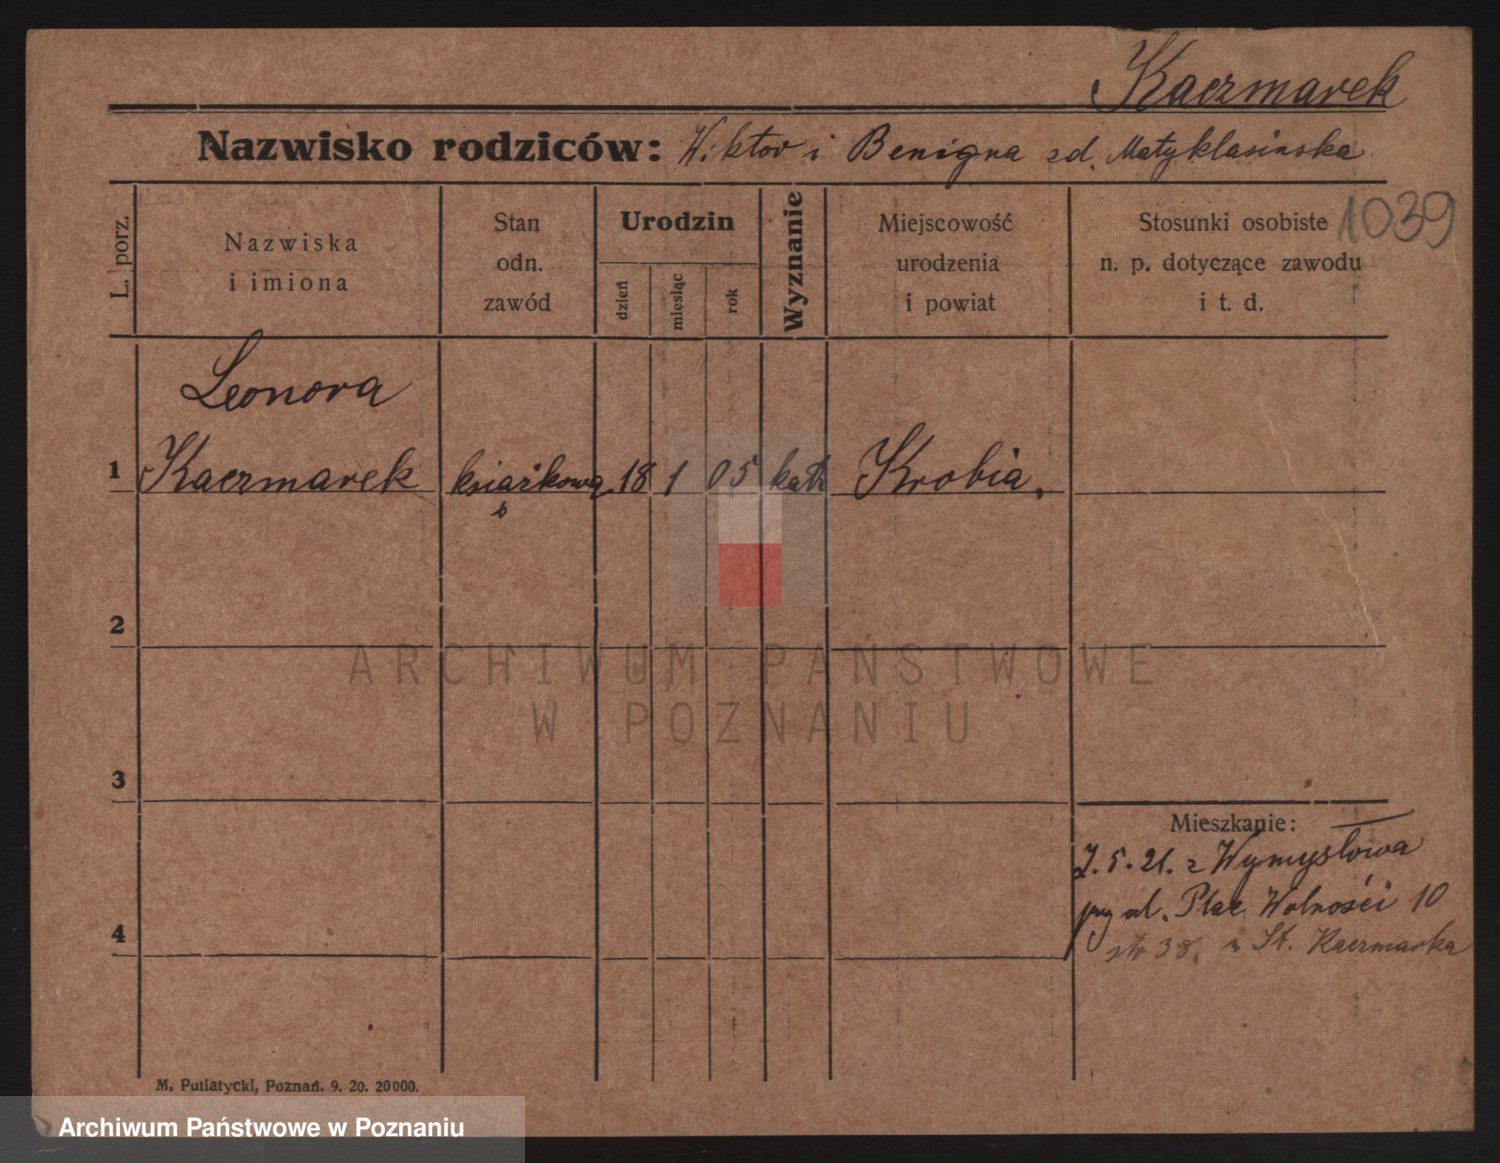 Kaczmarek
Nazwisko rodziców: Wiktor i Benigna zd. Matyklasińska
1039
L. porz.
Nazwiska
i imiona
Stan
odn.
zawód
Urodzin
dzień
miesiąc
rok
Wyznanie
Miejscowość
urodzenia
i powiat
Stosunki osobiste
n. p. dotyczące zawodu
i t. d.
Leonora
1 Kaczmarek książkowa 18 1 05 kath Krobia.
2
ARCHIWUM PAŃSTWOWE
W POZNANIU
3
Mieszkanie:
7.5.21. z Wymysłowa
ul. Plac Wolności 10
4
str 38. u St. Kaczmarka
M. Putiatycki, Poznań. 9. 20. 20000.
Archiwum Państwowe w Poznaniu